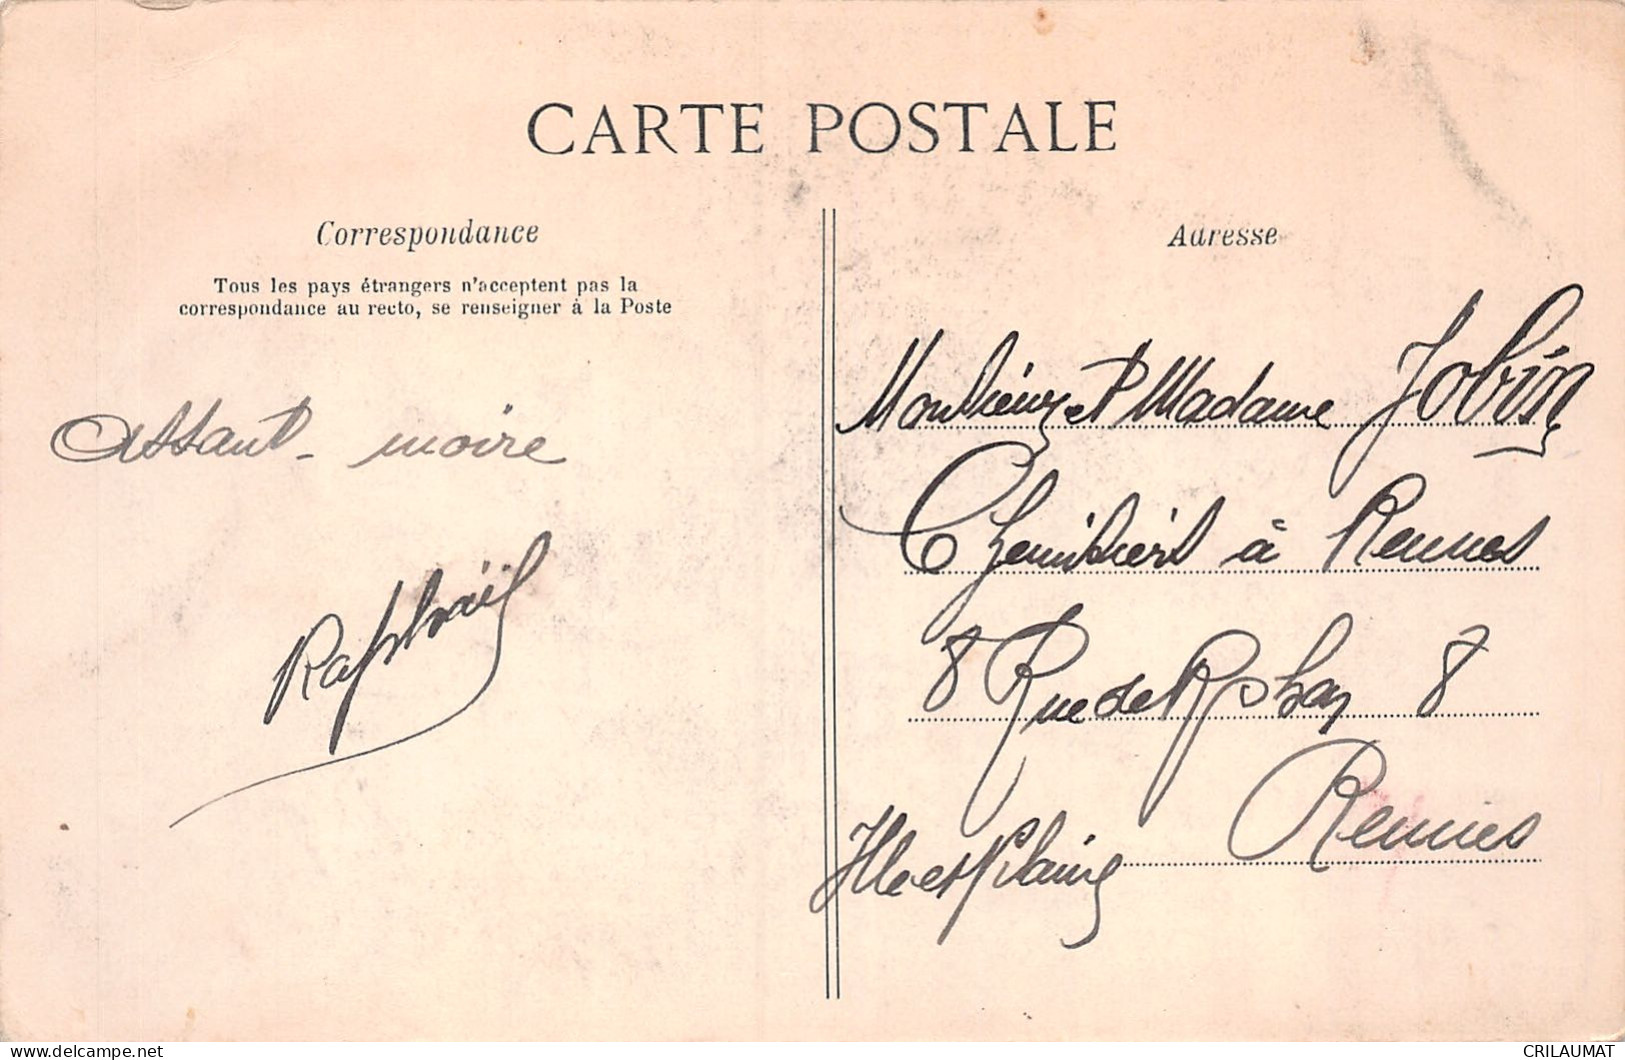 CARTE POSTALE
Correspondance
Tous les pays étrangers n'acceptent pas la
correspondance au recto, se renseigner à la Poste
Assant - moire
Raphaël
Adresse
Monsieur et Madame Jobin
à Rennes
8 Rue de Rohan 8
Rennes
Ille et Vilaine
CRILAUMAT